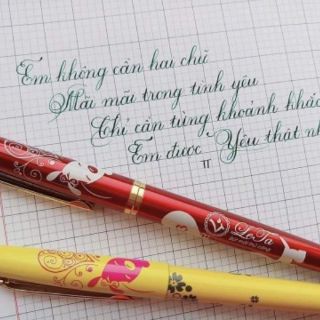 Em không cần hai chữ
Mãi mãi trong tình yêu
Chỉ cần từng khoảnh khắc
Em được Yêu thật
LeTa